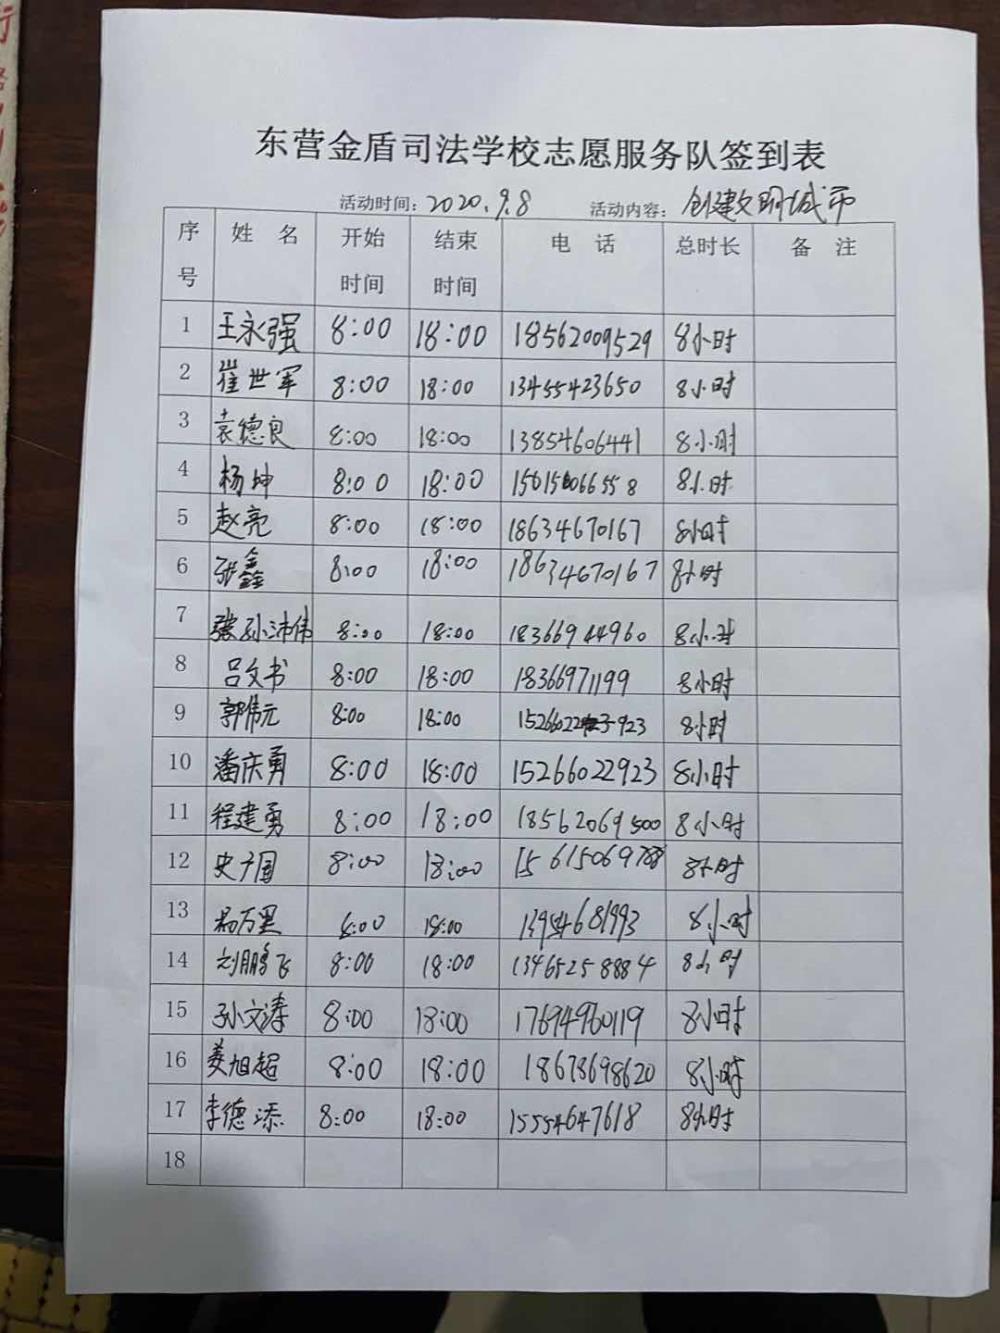 东营金盾司法学校志愿服务队签到表
活动时间: 2020.9.8 活动内容: 创建文明城市
序号 姓名 开始时间 结束时间 电话 总时长 备注
1 王永强 8:00 18:00 18562009529 8小时
2 崔世军 8:00 18:00 13455423650 8小时
3 袁德良 8:00 18:00 13854606441 8小时
4 杨坤 8:00 18:00 8小时
5 赵亮 8:00 18:00 18634670167 8小时
6 张鑫 8:00 18:00 18634670167 8小时
7 张孙沛伟 8:00 18:00 18366944960 8小时
8 吕文书 8:00 18:00 18366971199 8小时
9 郭伟元 8:00 18:00 8小时
10 潘庆勇 8:00 18:00 15266022923 8小时
11 程建勇 8:00 18:00 18562069500 8小时
12 史广国 8:00 18:00 8小时
13 杨万里 18:00 8小时
14 刘鹏飞 8:00 18:00 13465258884 8小时
15 孙文涛 8:00 18:00 17694960119 8小时
16 姜旭超 8:00 18:00 18678698620 8小时
17 李德添 8:00 18:00 15554647618 8小时
18